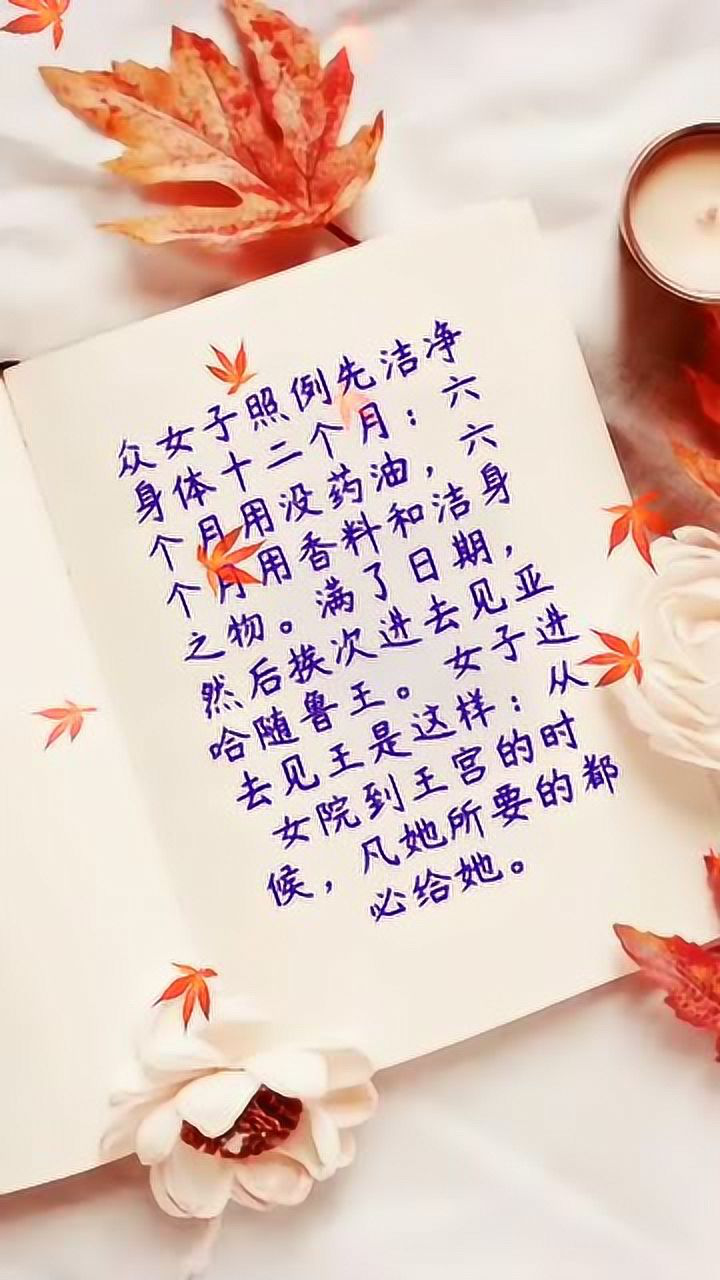 众女子照例先洁净
身体十二个月：六
个月用没药油，六
个月用香料和洁身
之物。满了日期，
然后挨次进去见亚
哈随鲁王。 女子进
去见王是这样：从
女院到王宫的时
候，凡她所要的都
必给她。